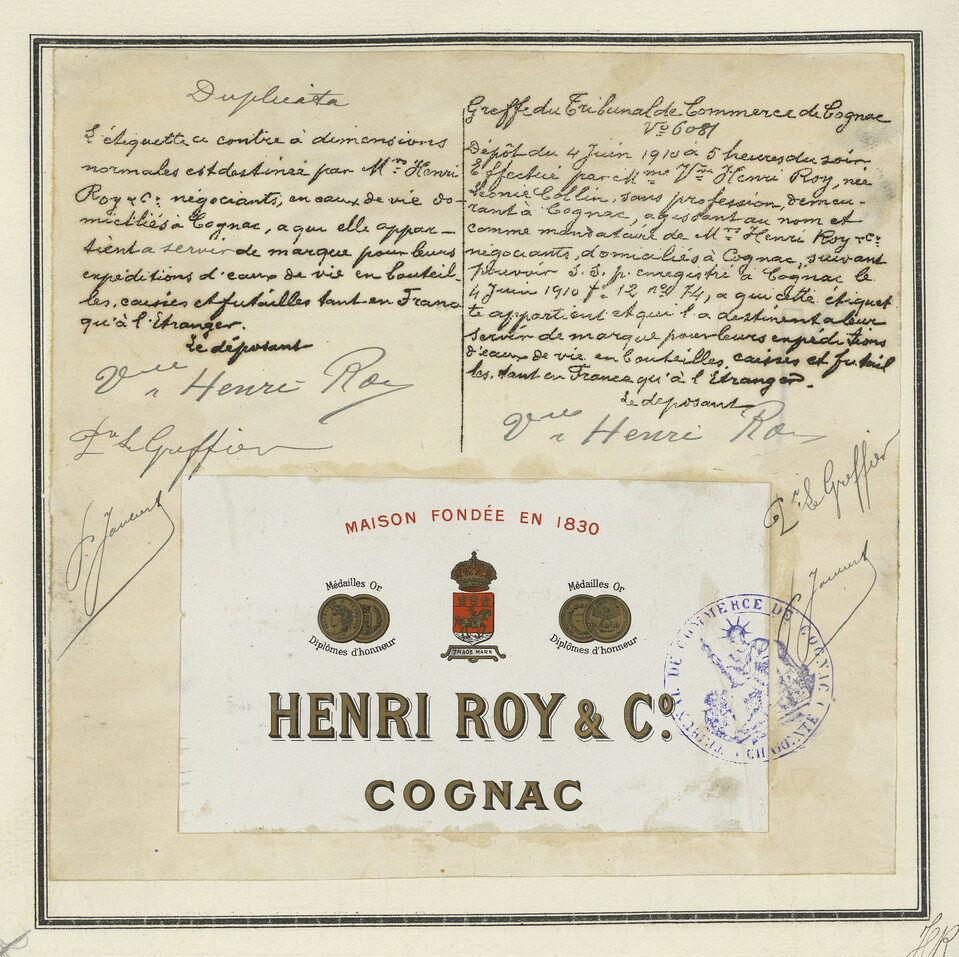 Duplicata
L'étiquette ci contre à dimensions
normales est destinée par M.rs Henri
Roy & Cie négociants, en eaux de vie do-
miciliés à Cognac, a qui elle appar-
tient a servir de marque pour leurs
expéditions d'eaux de vie en bouteil-
les, caisses et futailles tant en France
qu'à l'Etranger.
Le déposant
Vve Henri Roy
Pr Le Greffier
Greffe du Tribunal de Commerce de Cognac
No 6081
Dépôt du 4 Juin 1910 à 5 heures du soir
Effectué par Mme Vve Henri Roy, née
Léonie Collin, sans profession, demeu-
rant à Cognac, agissant au nom et
comme mandataire de M.rs Henri Roy & Co
négociants, domiciliés à Cognac, suivant
pouvoir S.S.p. enregistré à Cognac le
4 Juin 1910 fo 12 no 74, a qui cette étiquet
te appartient et qui l'a destinent a leur
servir de marque pour leurs expéditions
d'eaux de vie en bouteilles, caisses et futail
les, tant en France qu'à l'Etranger.
Le déposant
Vve Henri Roy
Pr Le Greffier
MAISON FONDÉE EN 1830
Médailles Or
Diplômes d'honneur
TRADE MARK
Médailles Or
Diplômes d'honneur
HENRI ROY & Co.
COGNAC
TRIBUNAL DE COMMERCE DE COGNAC
CHARENTE
HR